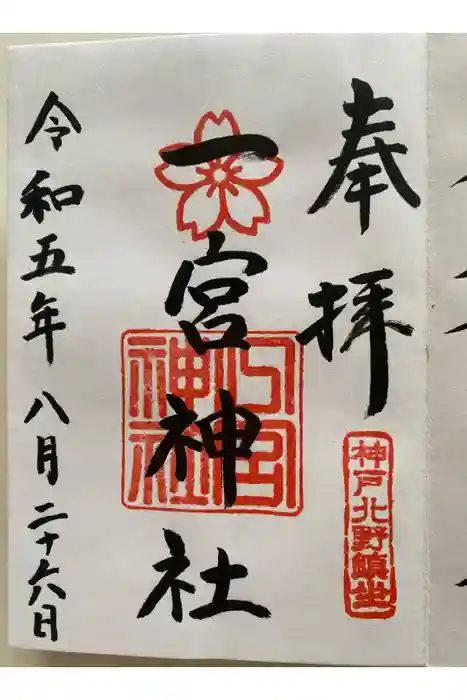 奉拝
神戸北野鎮坐
一宮神社
令和五年八月二十六日